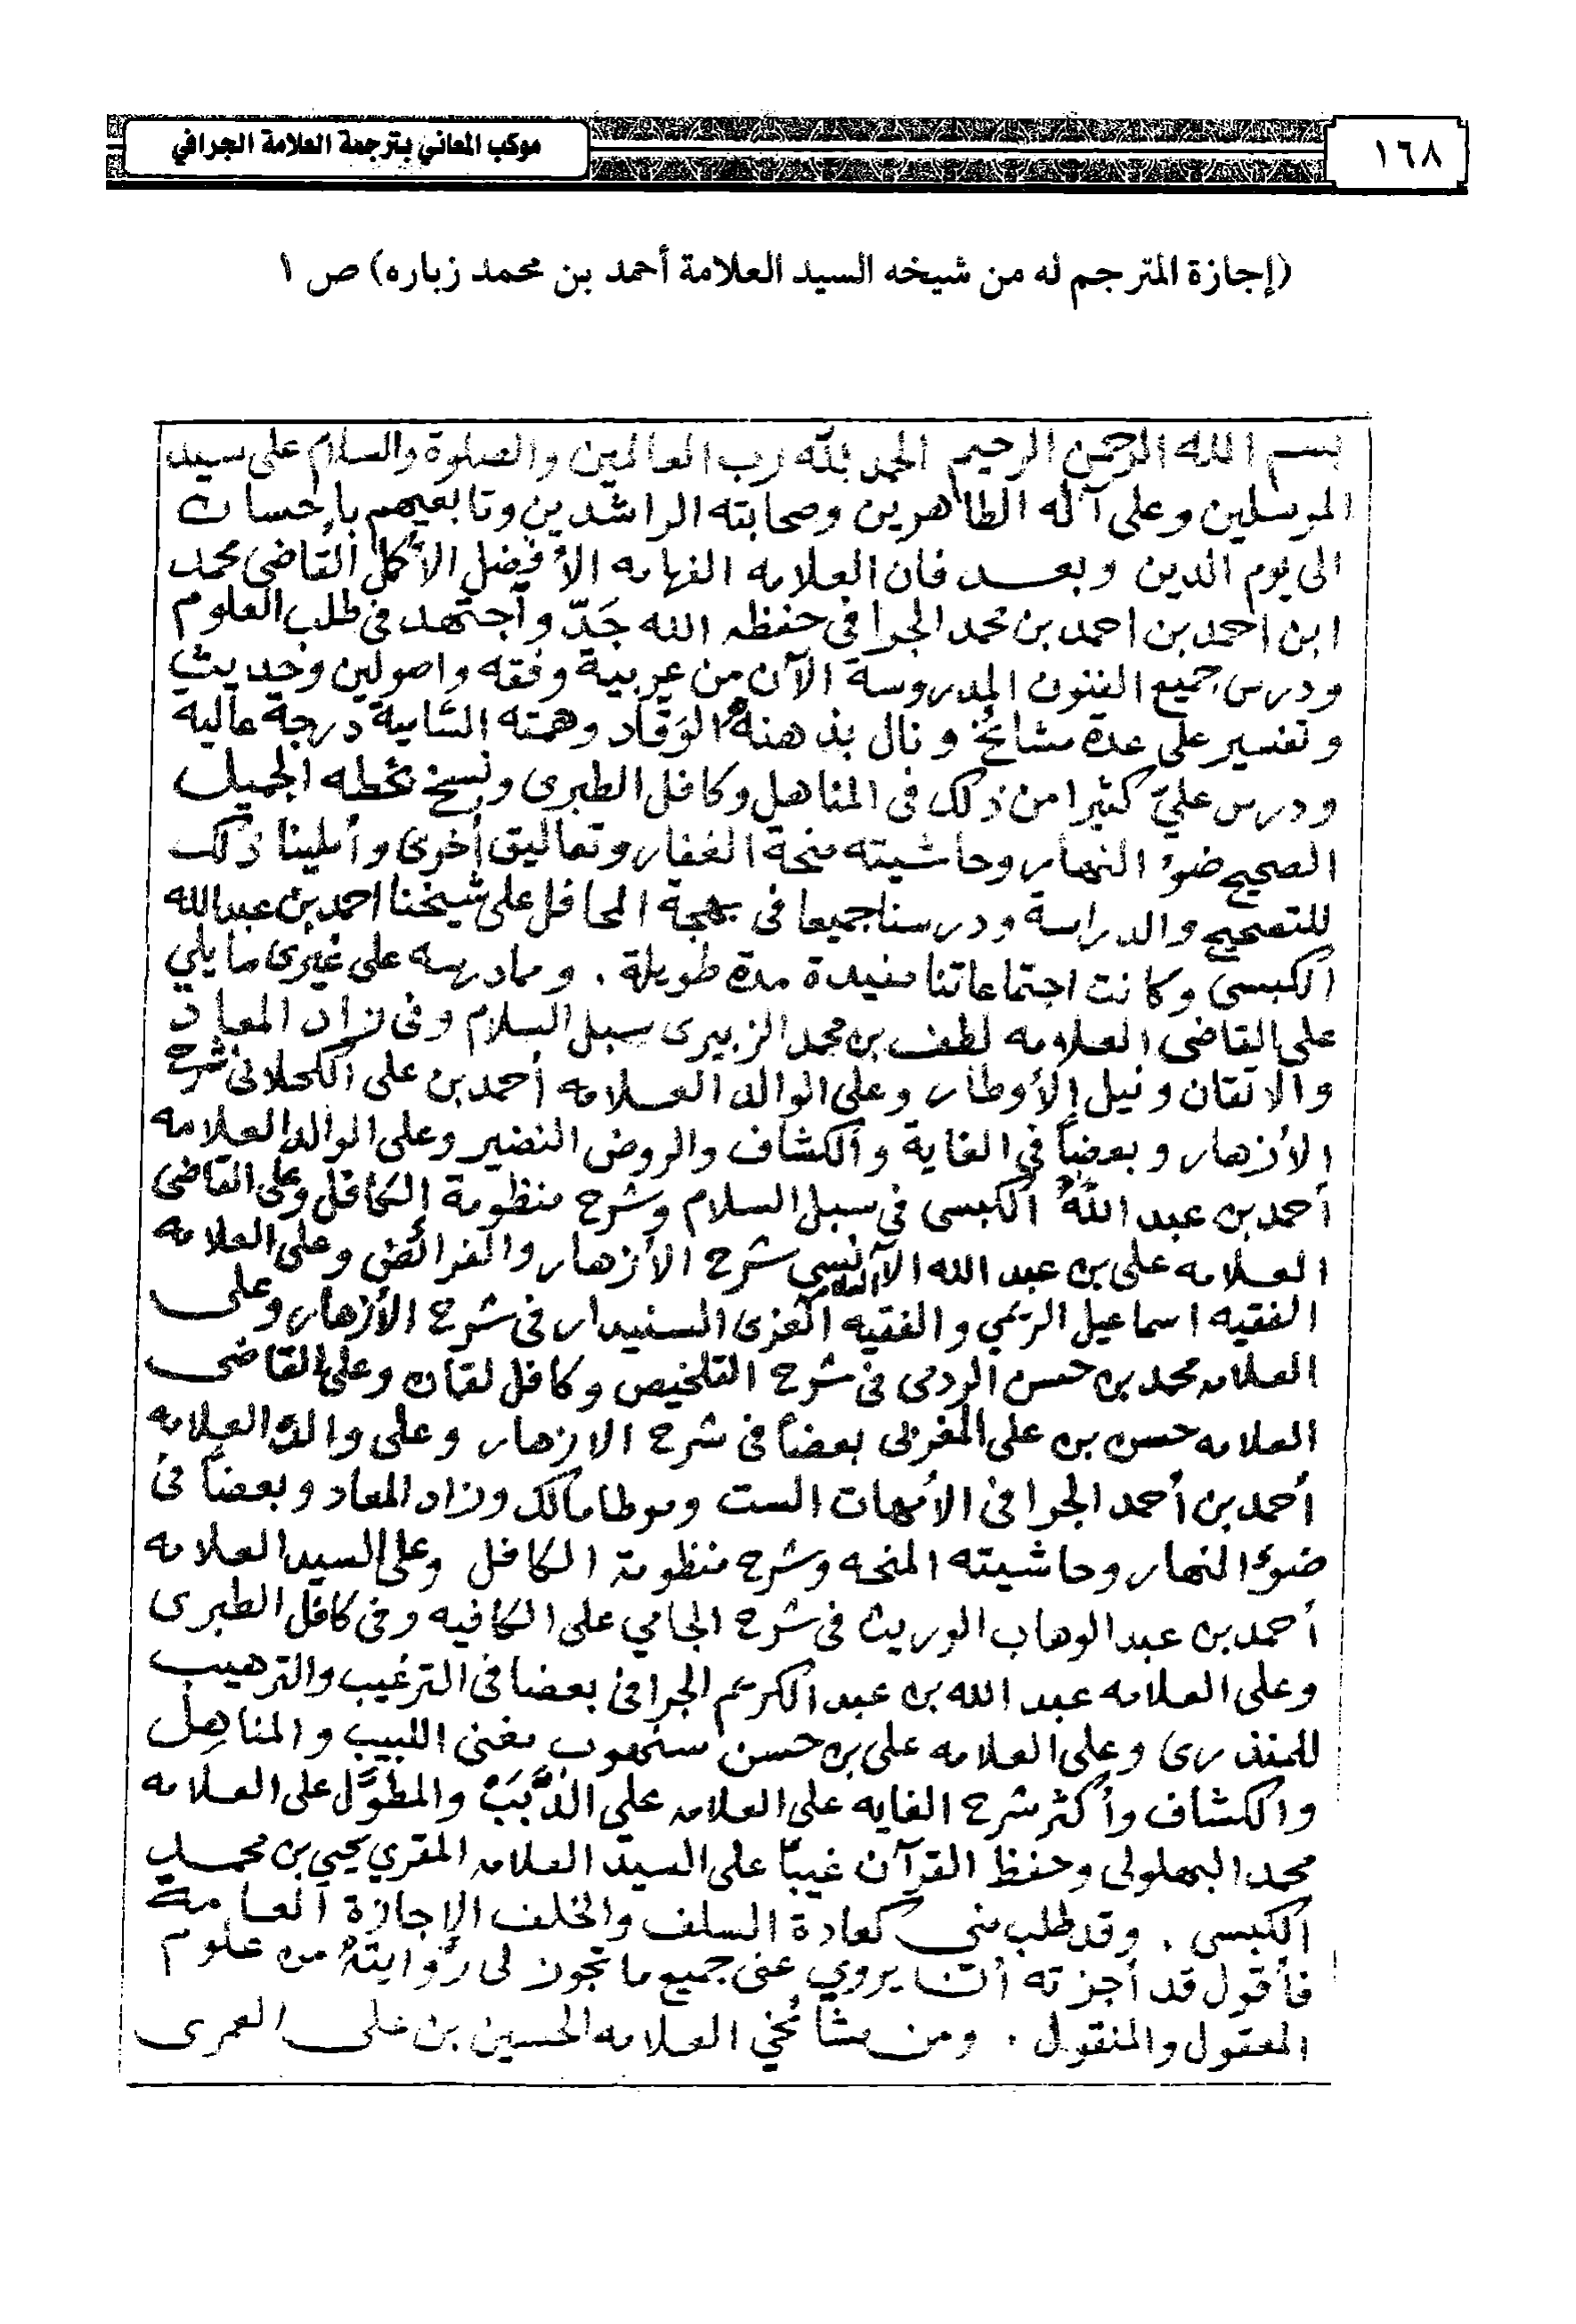 موكب المعاني بترجمة العلامة الجرافي
١٦٨
(إجازة المترجم له من شيخه السيد العلامة أحمد بن محمد زباره) ص ١
بسم الله الرحمن الرحيم الحمد لله رب العالمين والصلوة والسلام على سيد
المرسلين وعلى آله الطاهرين وصحابته الراشدين وتابعيهم بإحسان
الى يوم الدين وبعد فان العلامه الفهامه الأفضل الأكمل القاضى محمد
ابن احمد بن احمد بن محمد الجرافي حفظه الله جَدّ وأجتهد في طلب العلوم
ودرس جميع الفنون المدروسة الآن من عربية وفقه واصولين وحديث
وتفسير على عدة مشائخ ونال بذهنه الوَقّاد وهمته السَّامية درجة عاليه
ودرس عليّ كثيرا من ذلك فى المناهل وكافل الطبرى ونسخ بخطه الجميل
الصحيح ضوء النهار وحاشيته منحة الغفار وتعاليق أخرى وأملينا ذلك
للتصحيح والدراسة ودرسنا جميعا فى بهجة المحافل على شيخنا احمد بن عبدالله
الكبسى وكانت اجتماعاتنا مفيدة مدة طويلة . ومادرسه على غيرى مايلي
على القاضى العلامه لطف بن محمد الزبيرى سبل السلام وفى زاد المعاد
والاتقان ونيل الأوطار وعلى الوالد العلامه أحمد بن على الكحلانى شرح
الأزهار وبعضاً في الغاية والكشاف والروض النضير وعلى الوالد العلامه
أحمد بن عبد الله الكبسى في سبل السلام وشرح منظومة الكافل وعلى القاضى
العلامه على بن عبد الله الآنسي شرح الأزهار والفرائض وعلى العلامه
الفقيه اسماعيل الريمي والفقيه العلامه العزى السنيدار فى شرح الأزهار وعلى
العلامه محمد بن حسن الردمى فى شرح التلخيص وكافل لقمان وعلى القاضى
العلامه حسن بن على المغربى بعضاً فى شرح الازهار وعلى والده العلامه
أحمد بن أحمد الجرافى الأمهات الست وموطا مالك وزاد المعاد وبعضاً فى
ضوء النهار وحاشيته المنحه وشرح منظومة الكافل وعلى السيد العلامه
أحمد بن عبد الوهاب الوريث فى شرح الجامي على الكافيه وفى كافل الطبرى
وعلى العلامه عبد الله بن عبد الكريم الجرافى بعضا فى الترغيب والترهيب
للمنذرى وعلى العلامه على بن حسن سنهوب مغنى اللبيب والمناهل
والكشاف وأكثر شرح الغايه على العلامه على الدَّبَب والمطوَّل على العلامه
محمد البهلولى وحفظ القرآن غيباً على السيد العلامه المقري يحيى بن محمد
الكبسى . وقد طلب منى كعادة السلف والخلف الإجازة العامة
فأقول قد أجزته أن يروي عنى جميع ما تجوز لى روايته من علوم
المعقول والمنقول . ومن مشائخي العلامه الحسين بن على العمرى